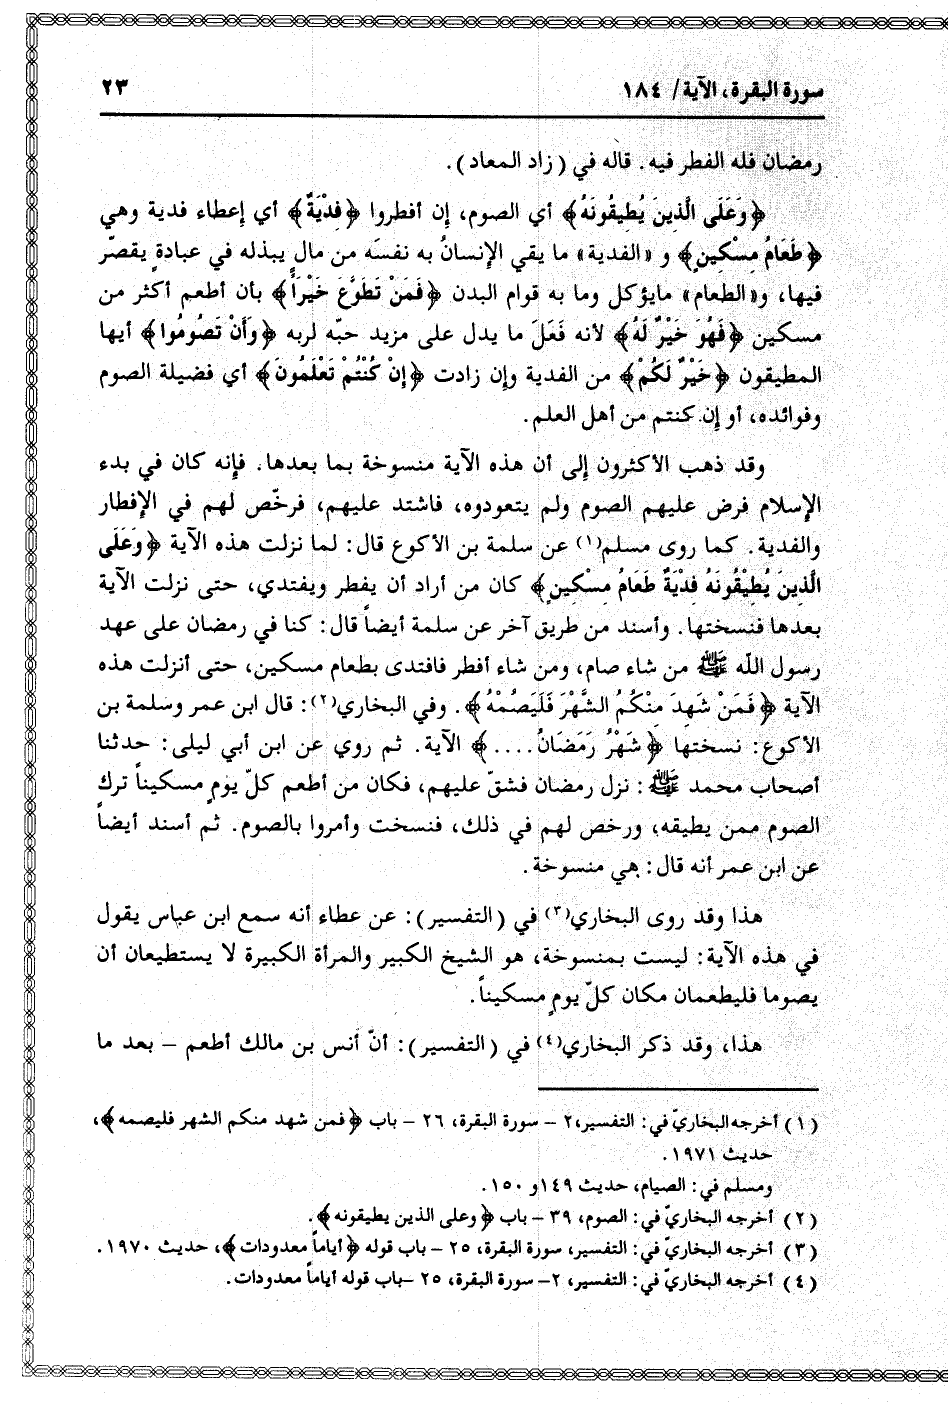 سورة البقرة، الآية/ ١٨٤
٢٣
رمضان فله الفطر فيه. قاله في (زاد المعاد).
﴿وَعَلَى الَّذِينَ يُطِيقُونَهُ﴾ أي الصوم، إن أفطروا ﴿فِدْيَةٌ﴾ أي إعطاء فدية وهي
﴿طَعَامُ مِسْكينٍ﴾ و «الفدية» ما يقي الإنسانُ به نفسَه من مال يبذله في عبادةٍ يقصّر
فيها، و«الطعام» مايؤكل وما به قوام البدن ﴿فَمَنْ تَطَوَّعَ خَيْراً﴾ بأن أطعم أكثر من
مسكين ﴿فَهُوَ خَيْرٌ لَهُ﴾ لأنه فَعَلَ ما يدل على مزيد حبّه لربه ﴿وَأَنْ تَصُومُوا﴾ أيها
المطيقون ﴿خَيْرٌ لَكُمْ﴾ من الفدية وإن زادت ﴿إِنْ كُنْتُمْ تَعْلَمُونَ﴾ أي فضيلة الصوم
وفوائده، أو إن كنتم من أهل العلم.
وقد ذهب الأكثرون إلى أن هذه الآية منسوخة بما بعدها. فإنه كان في بدء
الإسلام فرض عليهم الصوم ولم يتعودوه، فاشتد عليهم، فرخّص لهم في الإفطار
والفدية. كما روى مسلم(١) عن سلمة بن الأكوع قال: لما نزلت هذه الآية ﴿وَعَلَى
الَّذِينَ يُطِيْقُونَهُ فِدْيَةٌ طَعَامُ مِسْكينٍ﴾ كان من أراد أن يفطر ويفتدي، حتى نزلت الآية
بعدها فنسختها. وأسند من طريق آخر عن سلمة أيضاً قال: كنا في رمضان على عهد
رسول اللّه ﷺ من شاء صام، ومن شاء أفطر فافتدى بطعام مسكين، حتى أنزلت هذه
الآية ﴿فَمَنْ شَهِدَ مِنْكُمُ الشَّهْرَ فَلَيَصُمْهُ﴾. وفي البخاري(٢): قال ابن عمر وسلمة بن
الأكوع: نسختها ﴿شَهْرُ رَمَضَانُ....﴾ الآية. ثم روي عن ابن أبي ليلى: حدثنا
أصحاب محمد ﷺ: نزل رمضان فشقّ عليهم، فكان من أطعم كلّ يومٍ مسكيناً ترك
الصوم ممن يطيقه، ورخص لهم في ذلك، فنسخت وأمروا بالصوم. ثم أسند أيضاً
عن ابن عمر أنه قال: هي منسوخة.
هذا وقد روى البخاري(٣) في (التفسير): عن عطاء أنه سمع ابن عباس يقول
في هذه الآية: ليست بمنسوخة، هو الشيخ الكبير والمرأة الكبيرة لا يستطيعان أن
يصوما فليطعمان مكان كلّ يومٍ مسكيناً.
هذا، وقد ذكر البخاري(٤) في (التفسير): أنّ أنس بن مالك أطعم – بعد ما
(١) أخرجه البخاريّ في: التفسير، ٢ – سورة البقرة، ٢٦ – باب ﴿فمن شهد منكم الشهر فليصمه﴾،
حديث ١٩٧١.
ومسلم في: الصيام، حديث ١٤٩ و ١٥٠.
(٢) أخرجه البخاريّ في: الصوم، ٣٩ – باب ﴿وعلى الذين يطيقونه﴾.
(٣) أخرجه البخاريّ في: التفسير، سورة البقرة، ٢٥ – باب قوله ﴿أياماً معدودات﴾، حديث ١٩٧٠.
(٤) أخرجه البخاريّ في: التفسير، ٢– سورة البقرة، ٢٥ –باب قوله أياماً معدودات.